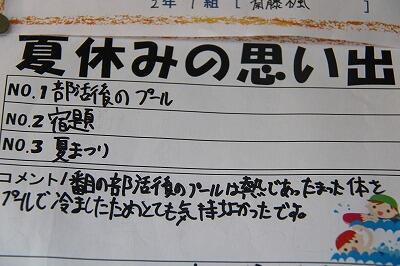 2年 1組 [
夏休みの思い出
NO.1 部活後のプール
NO.2 宿題
NO.3 夏まつり
コメント 1番目の部活後のプールは熱であったまった体を
プールで冷ましたためとても気持よかったです。